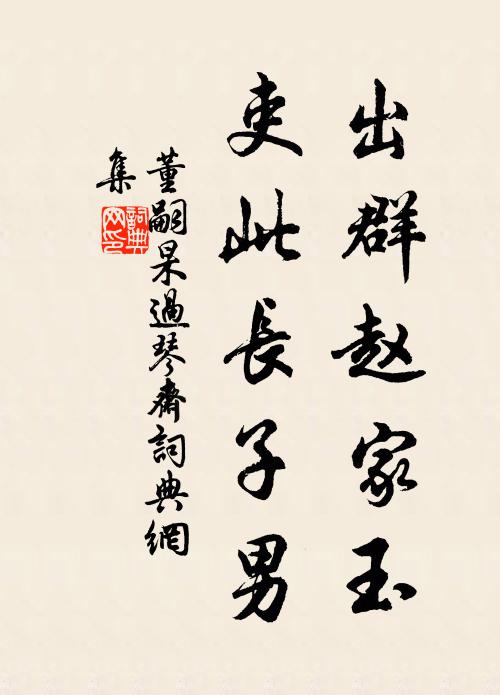 出群赵家玉
吏此長子男
董嗣杲過琴齋詞典網
集
詞典網印